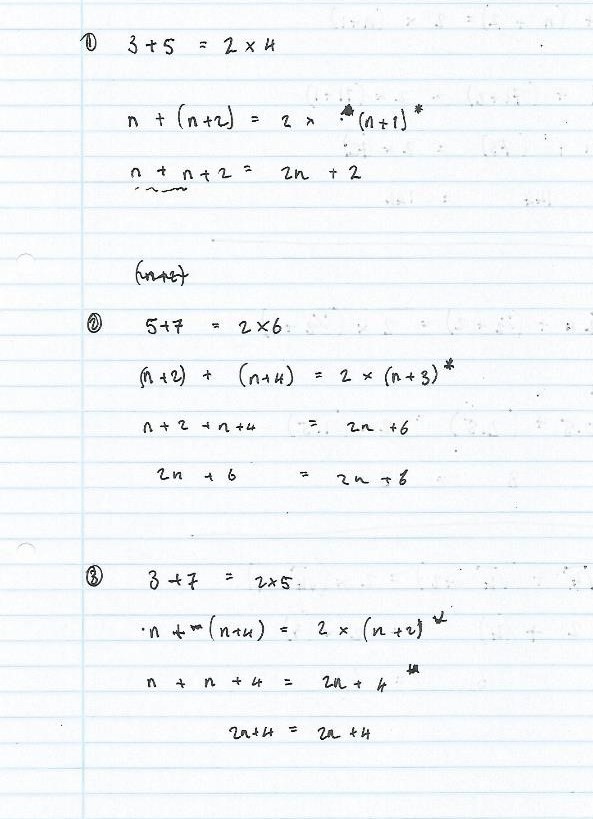 ① 3 + 5 = 2 × 4
n + (n+2) = 2 × (n+1)*
n + n + 2 = 2n + 2
(2n+2)
② 5+7 = 2×6
(n+2) + (n+4) = 2 × (n+3)*
n + 2 + n+4 = 2n +6
2n + 6 = 2n + 6
③ 3 +7 = 2×5
n + (n+4) = 2 × (n+2)*
n + n + 4 = 2n + 4
2n+4 = 2n +4